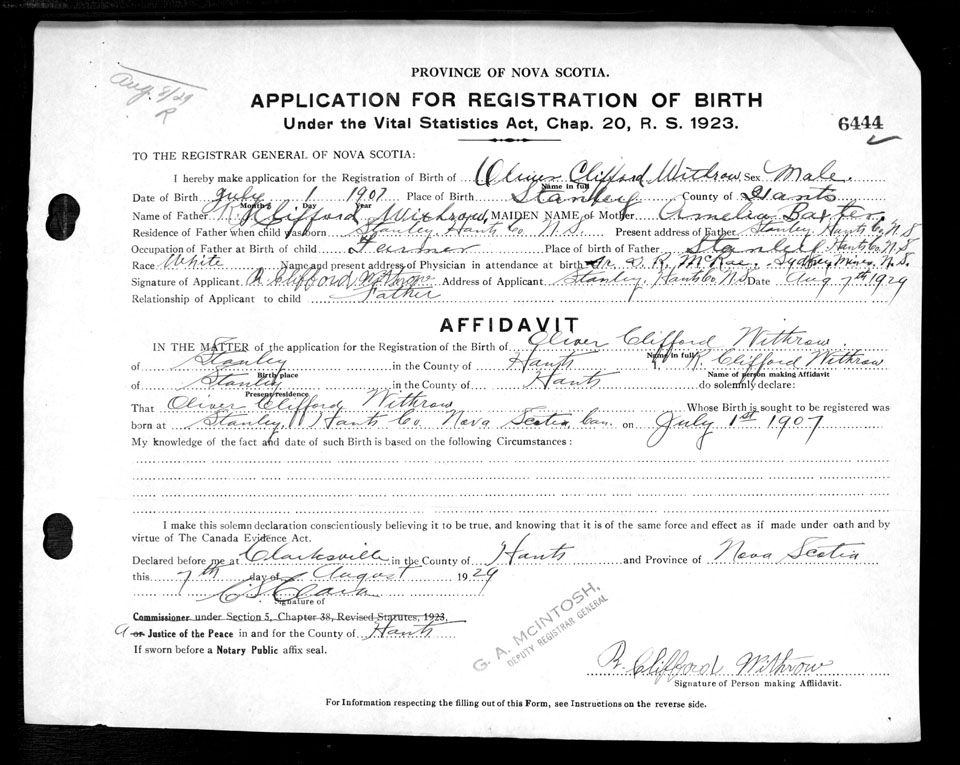 Aug. 8/29
R
PROVINCE OF NOVA SCOTIA.
APPLICATION FOR REGISTRATION OF BIRTH
Under the Vital Statistics Act, Chap. 20, R. S. 1923.
6444
TO THE REGISTRAR GENERAL OF NOVA SCOTIA:
I hereby make application for the Registration of Birth of Oliver Clifford Withrow Sex Male.
Name in full
Date of Birth July 1 1907 Place of Birth Stanley County of Hants
Month Day Year
Name of Father R. Clifford Withrow, MAIDEN NAME of Mother Amelia Baxter
Residence of Father when child was born Stanley Hants Co. N.S. Present address of Father Stanley Hants Co. N.S
Occupation of Father at Birth of child Farmer Place of birth of Father Stanley Hants Co. N.S
Race White Name and present address of Physician in attendance at birth Dr. D. R. McRae. Sydney Mines N.S.
Signature of Applicant R. Clifford Withrow Address of Applicant Stanley, Hants Co N.S Date Aug 7th 1929
Relationship of Applicant to child Father
AFFIDAVIT
IN THE MATTER of the application for the Registration of the Birth of Oliver Clifford Withrow
Name in full
of Stanley in the County of Hants I, R. Clifford Withrow
Birth place Name of person making Affidavit
of Stanley in the County of Hants do solemnly declare:
Present residence
That Oliver Clifford Withrow Whose Birth is sought to be registered was
born at Stanley, Hants Co. Nova Scotia Can. on July 1st 1907
My knowledge of the fact and date of such Birth is based on the following Circumstances:
I make this solemn declaration conscientiously believing it to be true, and knowing that it is of the same force and effect as if made under oath and by
virtue of The Canada Evidence Act.
Declared before me at Clarksville in the County of Hants and Province of Nova Scotia
this 7th day of August 1929
Signature of
Commissioner under Section 5, Chapter 38, Revised Statutes, 1923,
a or Justice of the Peace in and for the County of Hants
If sworn before a Notary Public affix seal.
G. A. McINTOSH,
DEPUTY REGISTRAR GENERAL
R. Clifford Withrow
Signature of Person making Affidavit.
For Information respecting the filling out of this Form, see Instructions on the reverse side.